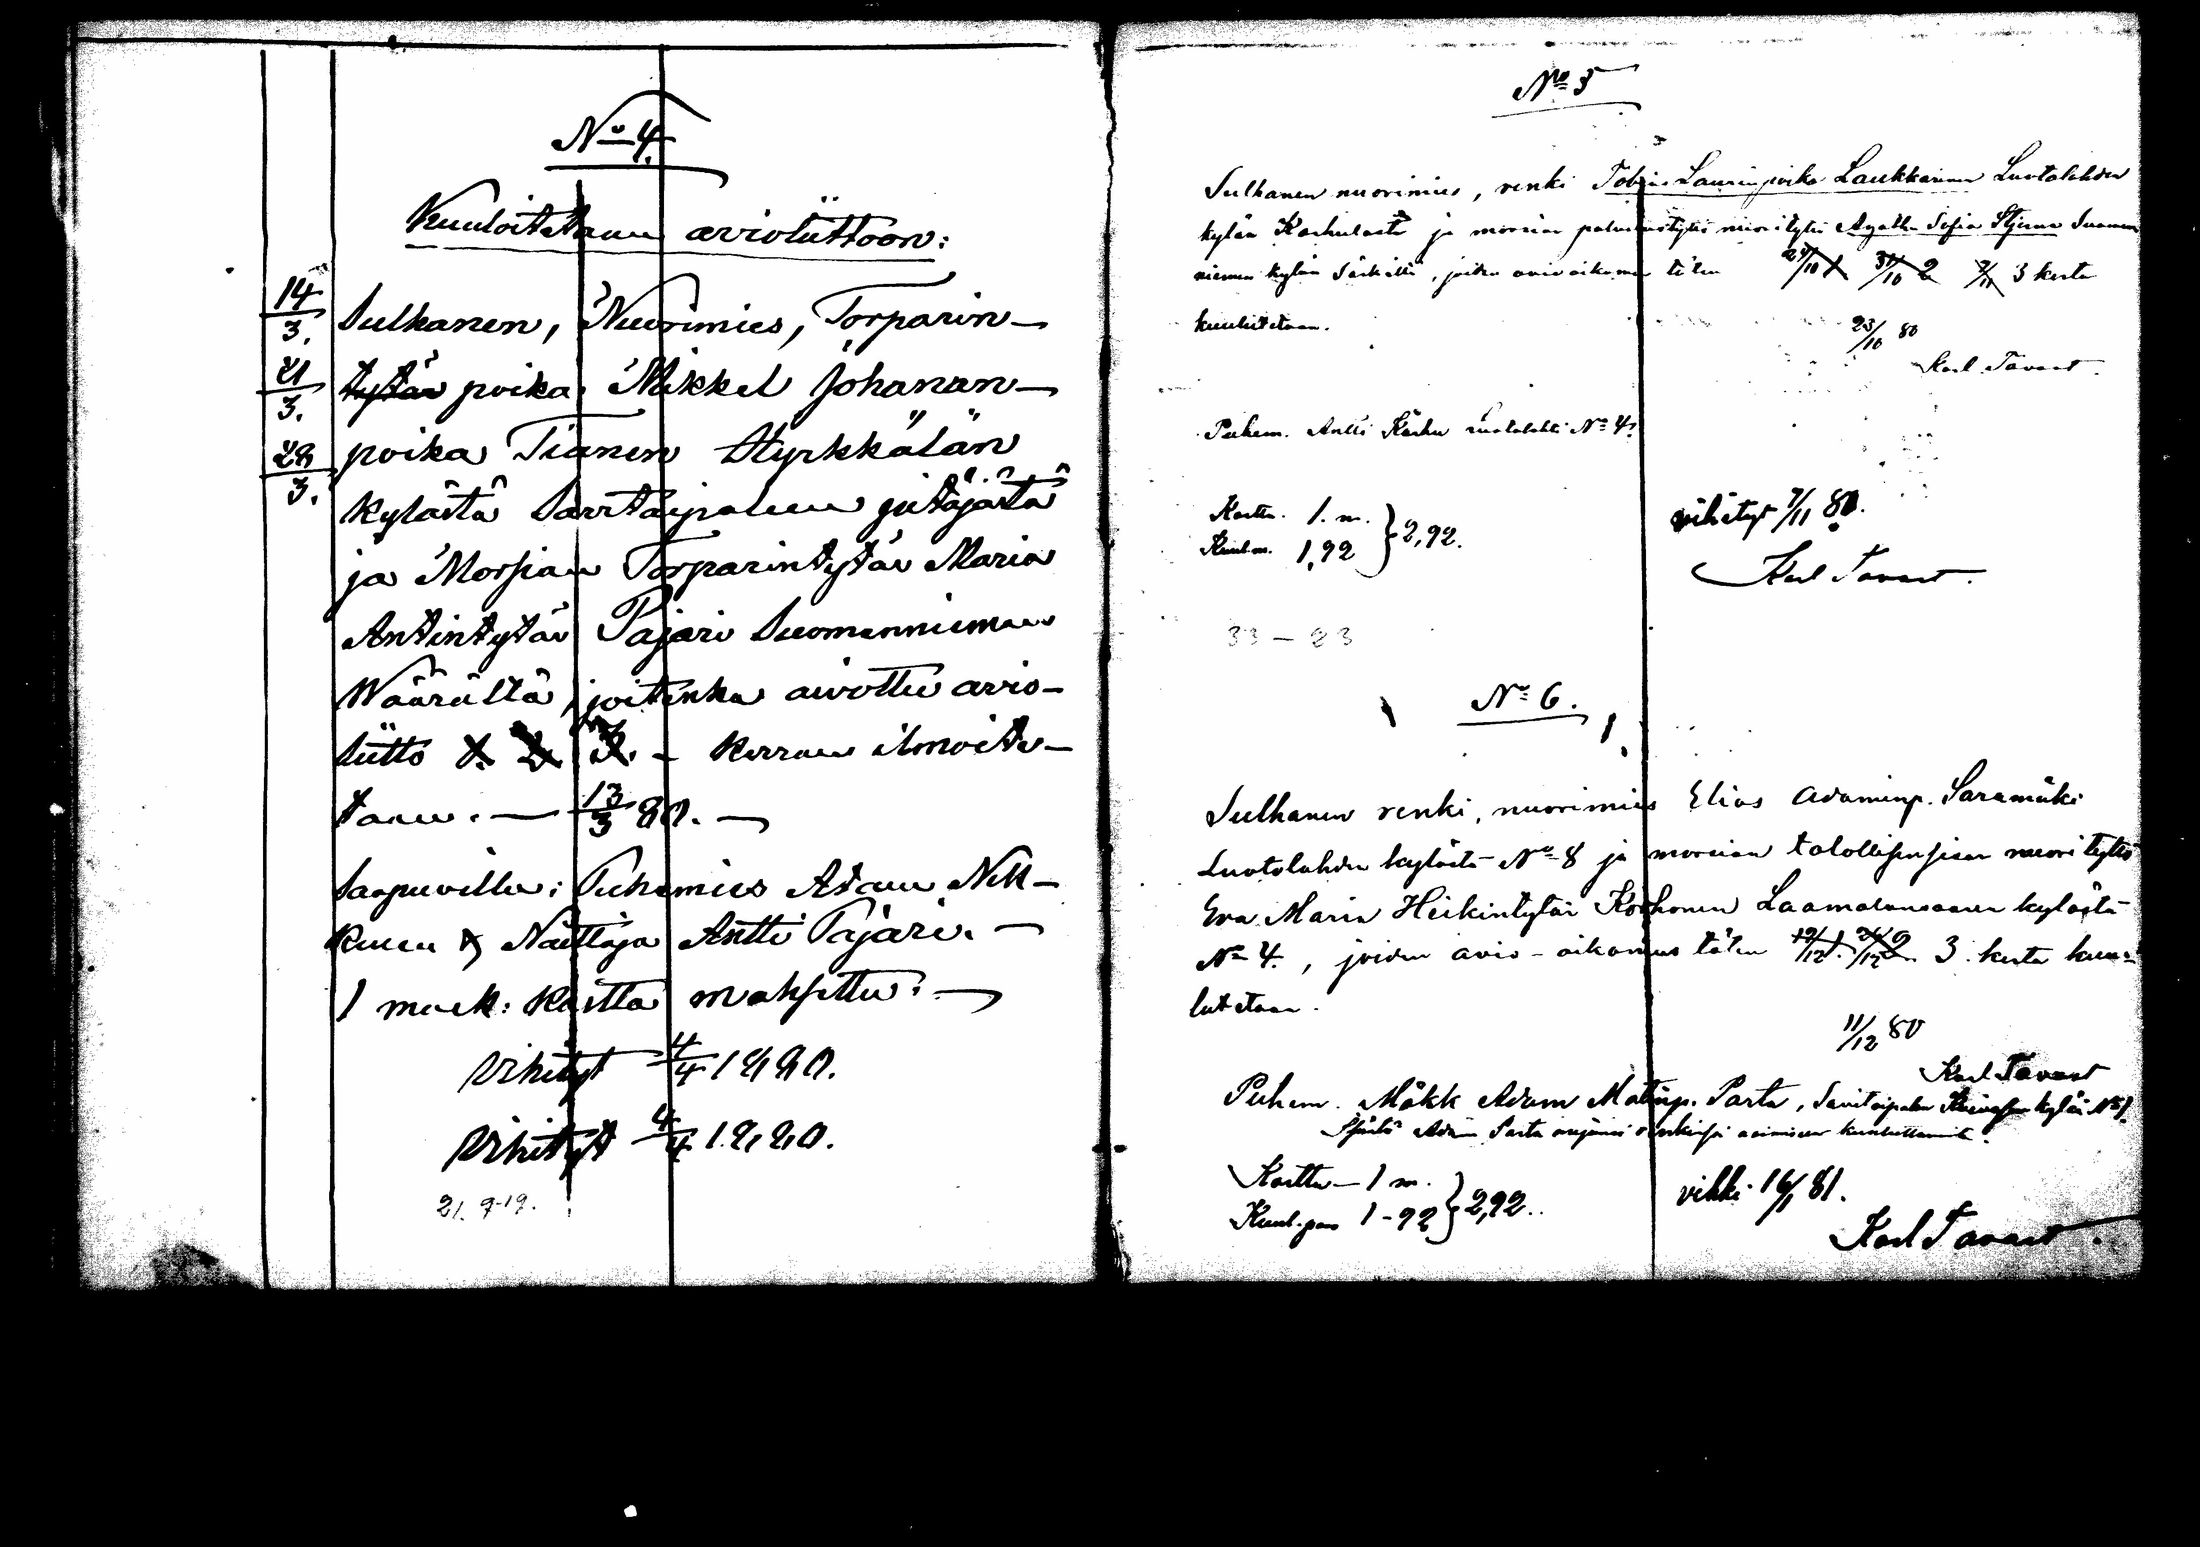 No 4.
Kuuloitetaan avioliittoon:
14/3. Sulhanen, Nuorimies, Torparin-
21/3. tytär poika Mikkel Johanan-
28/3. poika Tianen Hyrkkälän
kylästä Savitaipaleen pitäjästä
ja Morsian Torparintytär Maria
Antintytär Pajari Suomenniemen
Wäärältä, joitenka aivottu avio-
liitto 1. 2. 3. - kerran ilmoite-
taan. — 13/3 80. —
Saapuvilla: Puhemies Adam
Naittaja Antti Pajari. —
1 mark: kartta maksettu. —
Vihityt 4/4 1880.
Vihityt 4/4 1880.
21. 9-19.
No 5
Sulhanen nuorimies, renki Tobias Laurinpoika Laukkarinen Luotolahden
kylän Karhulasta ja morsian nuori tyttö Agatha Sofia Stjerna Suomen
niemen kylän, joiden avioaikomus täten 24/10 1 31/10 2 7/11 3 kerta
kuulutetaan.
23/10 80
Karl Tavast.
Puhem. Antti Karhu Luotolahti No 4.
Kartta. 1. m.
Kuulm. 1,92 } 2,92.
vihityt 7/11 80.
Karl Tavast.
33 - 23
No 6.
Sulhanen renki, nuorimies Elias Adaminp. Saramäki
Luotolahden kylästä No 8 ja morsian talollisen sisar nuori tyttö
Eva Maria Heikintytär Korhonen Laamalansaaren kylästä
No 4., joiden avio-aikomus täten 12/12 1. 2. 3. kerta kuu-
lutetaan.
11/12 80
Karl Tavast
Puhem. Mökk Adam Matinp. Parta, Savitaipalen kylän No 1.
Kartta - 1 m.
Kuul. pan 1-92 } 2,92.
vihki 16/1 81.
Karl Tavast.